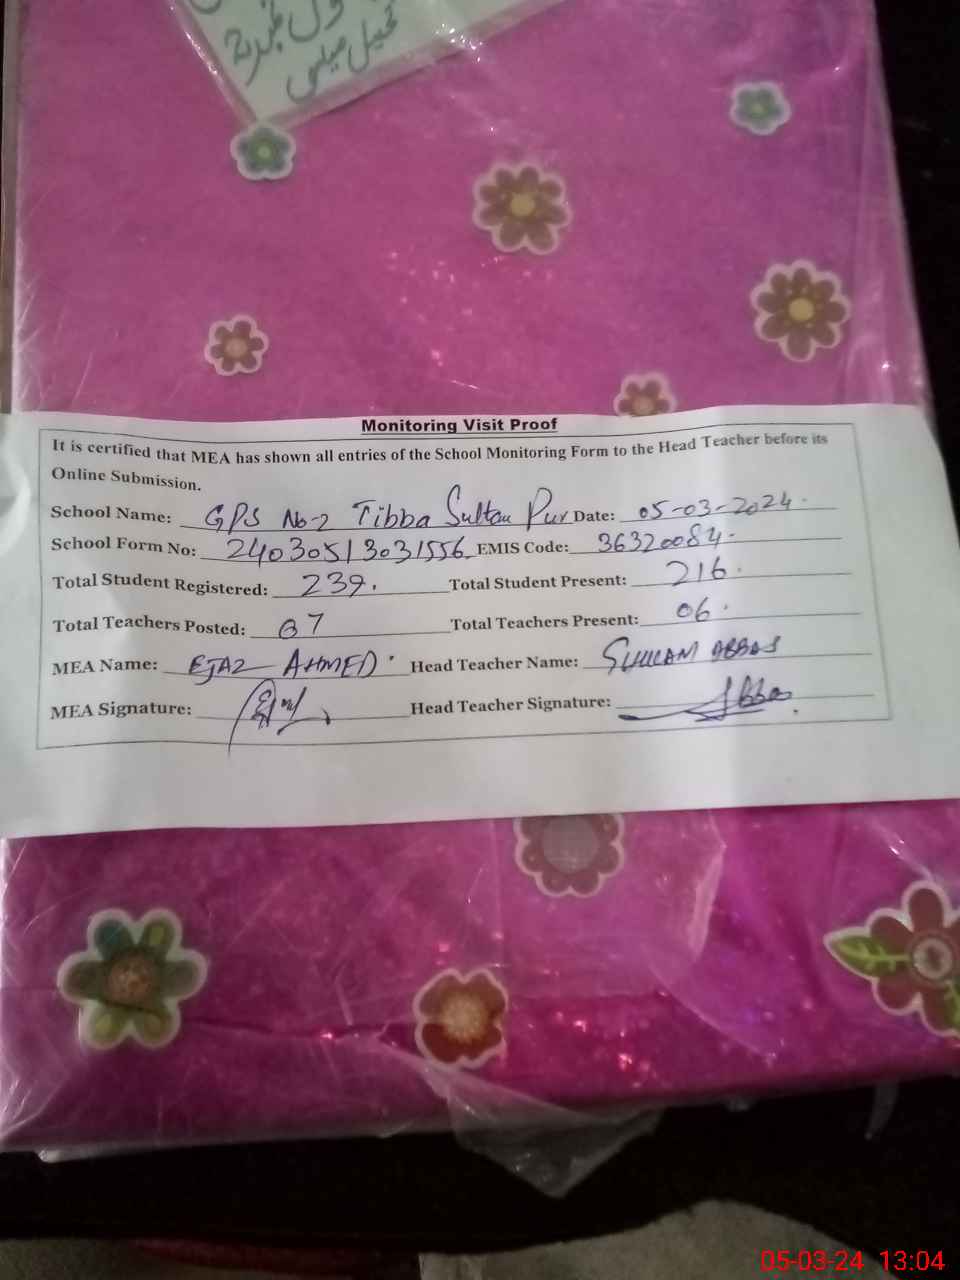 ول نمبر 2
تحصیل میلسی
Monitoring Visit Proof
It is certified that MEA has shown all entries of the School Monitoring Form to the Head Teacher before its
Online Submission.
School Name: GPS No-2 Tibba Sultan Pur Date: 05-03-2024
School Form No: 24030513031556 EMIS Code: 36320084
Total Student Registered: 239. Total Student Present: 216.
Total Teachers Posted: 07 Total Teachers Present: 06.
MEA Name: EJAZ AHMED Head Teacher Name: ABBAS
MEA Signature: Head Teacher Signature: Abbas
05-03-24 13:04